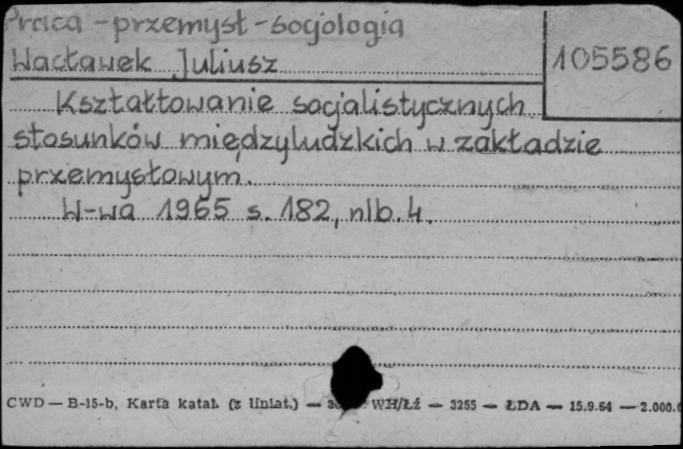 Praca - przemysł - socjologia
Wacławek Juliusz
105586
Kształtowanie socjalistycznych
stosunków międzyludzkich w zakładzie
przemysłowym.
W-wa 1965 s. 182, nlb. 4.
CWD — B-15-b, Karta katal. (z liniat.) — WH/Łź — 3255 — ŁDA — 15.9.64 — 2.000.